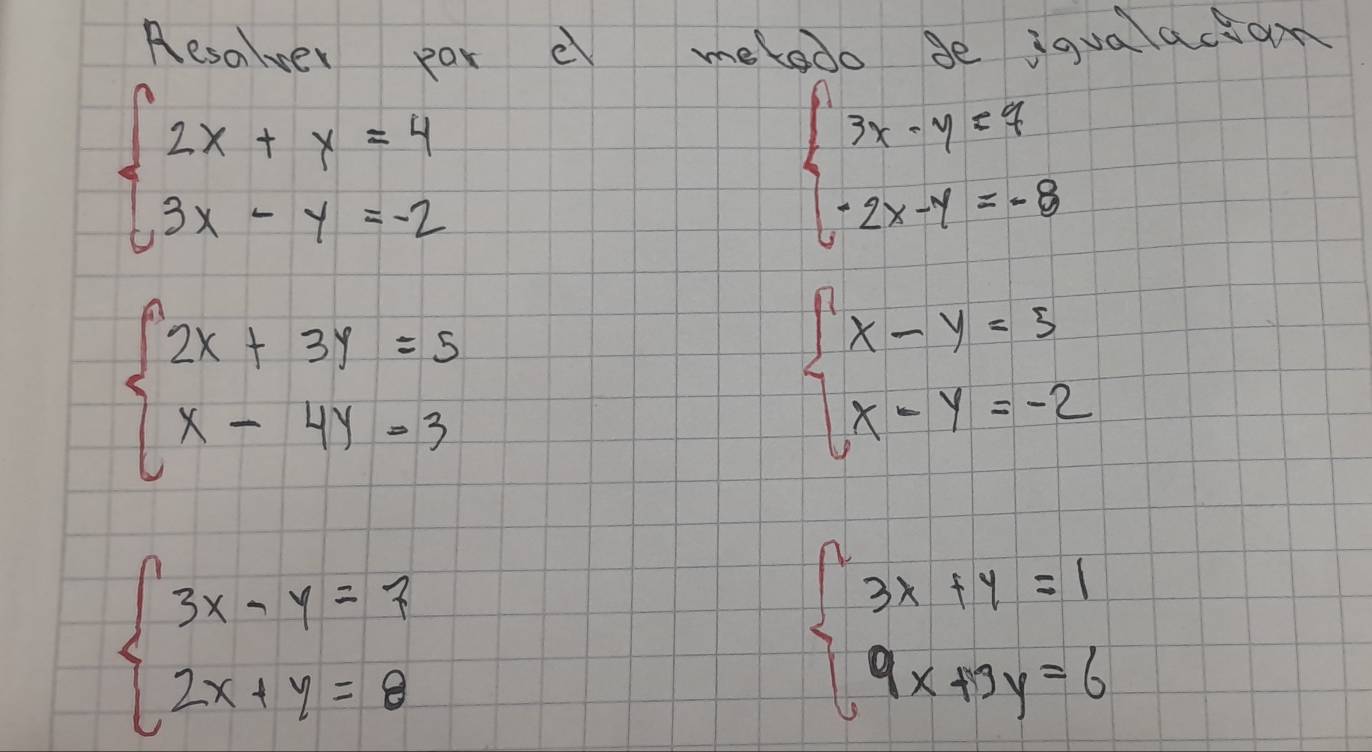 Resolver por el metodo de igualación
2x + y = 4
3x - y = -2
3x - y = 7
-2x - y = -8
2x + 3y = 5
x - 4y = 3
x - y = 5
x - y = -2
3x - y = 7
2x + y = 8
3x + y = 1
9x + 3y = 6